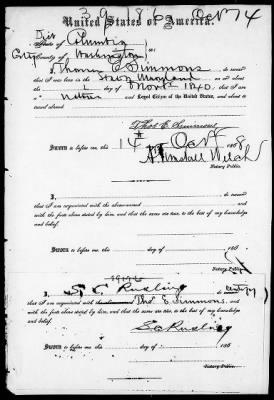 39186 Oct 14
United States of America.
Dis
State of Columbia
City County of Washington ss:
I, Thomas E Simmons do swear
that I was born in the State Maryland on or about
the 6 day of Nov 1840
Native and Loyal Citizen of the United States, and about to
travel abroad.
Thos E Simmons
Sworn before me, this 14 day of Oct 186
Notary Public.
I, do swear
that I am acquainted with the above-named and with
the facts above stated by and that the same are true, to the best of my knowledge
and belief.
Sworn before me, this day of 186
Notary Public.
39186
I, S. C. Rusling do certify
that I am acquainted with Thos E. Simmons, and
with the facts above stated by him, and that the same are true, to the best of my knowledge
and belief.
Rusling
Sworn before me, this day of 186
Notary Public.